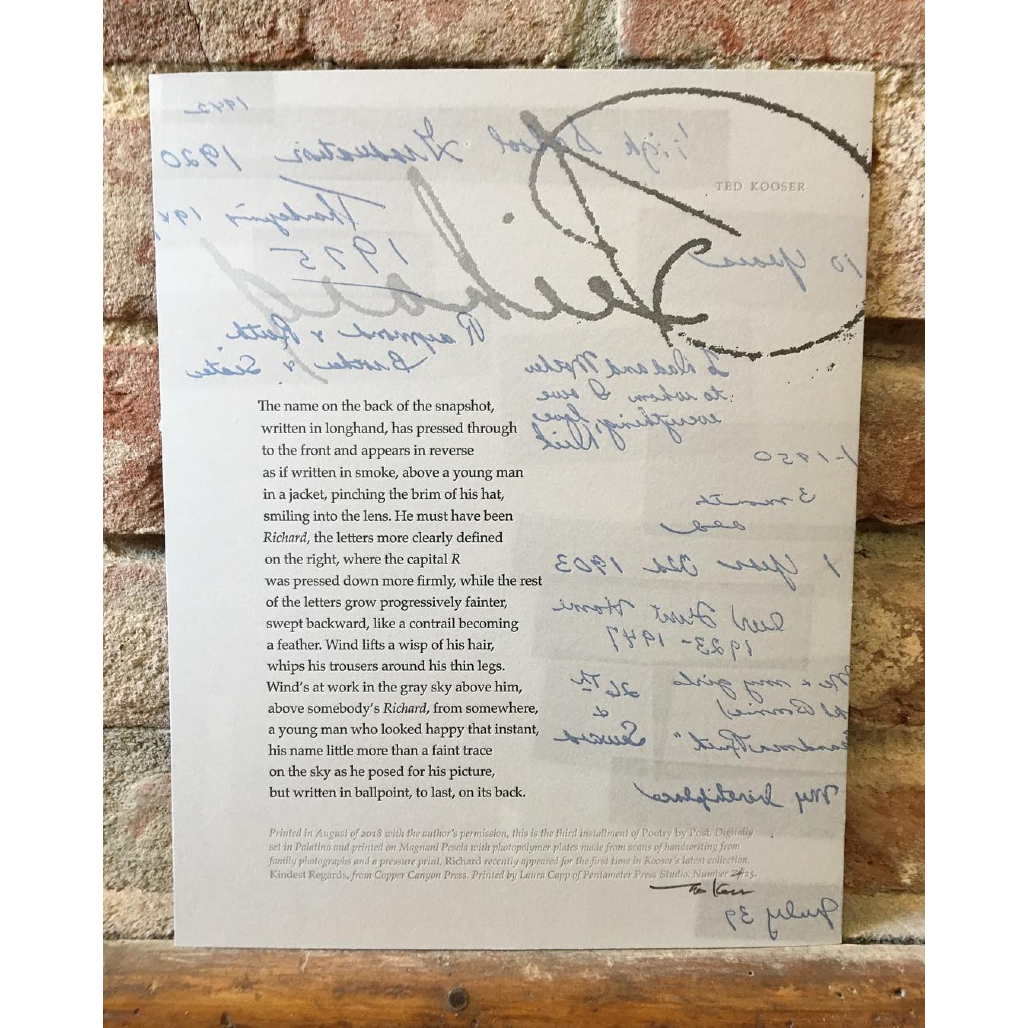 1942
High School Graduation 1920
TED KOOSER
Thanksgiving 194
1925
10 years
Richard
Raymond & Ruth
Brother & Sister
To Dad and Mother
to whom I owe
everything, love,
Dick
The name on the back of the snapshot,
written in longhand, has pressed through
to the front and appears in reverse
as if written in smoke, above a young man
in a jacket, pinching the brim of his hat,
smiling into the lens. He must have been
Richard, the letters more clearly defined
on the right, where the capital R
was pressed down more firmly, while the rest
of the letters grow progressively fainter,
swept backward, like a contrail becoming
a feather. Wind lifts a wisp of his hair,
whips his trousers around his thin legs.
Wind's at work in the gray sky above him,
above somebody's Richard, from somewhere,
a young man who looked happy that instant,
his name little more than a faint trace
on the sky as he posed for his picture,
but written in ballpoint, to last, on its back.
1-1950
3 months
old
1 Year Old 1903
Our First Home
1923-1947
Me & my girls
26th
&
Seward
Grandma
My birthplace
Printed in August of 2018 with the author's permission, this is the third installment of Poetry by Post. Digitally
set in Palatino and printed on Magnani Pescia with photopolymer plates made from scans of handwriting from
family photographs and a pressure print, Richard recently appeared for the first time in Kooser's latest collection,
Kindest Regards, from Copper Canyon Press. Printed by Laura Capp of Pentameter Press Studio. Number /25.
Ted Kooser
July 39